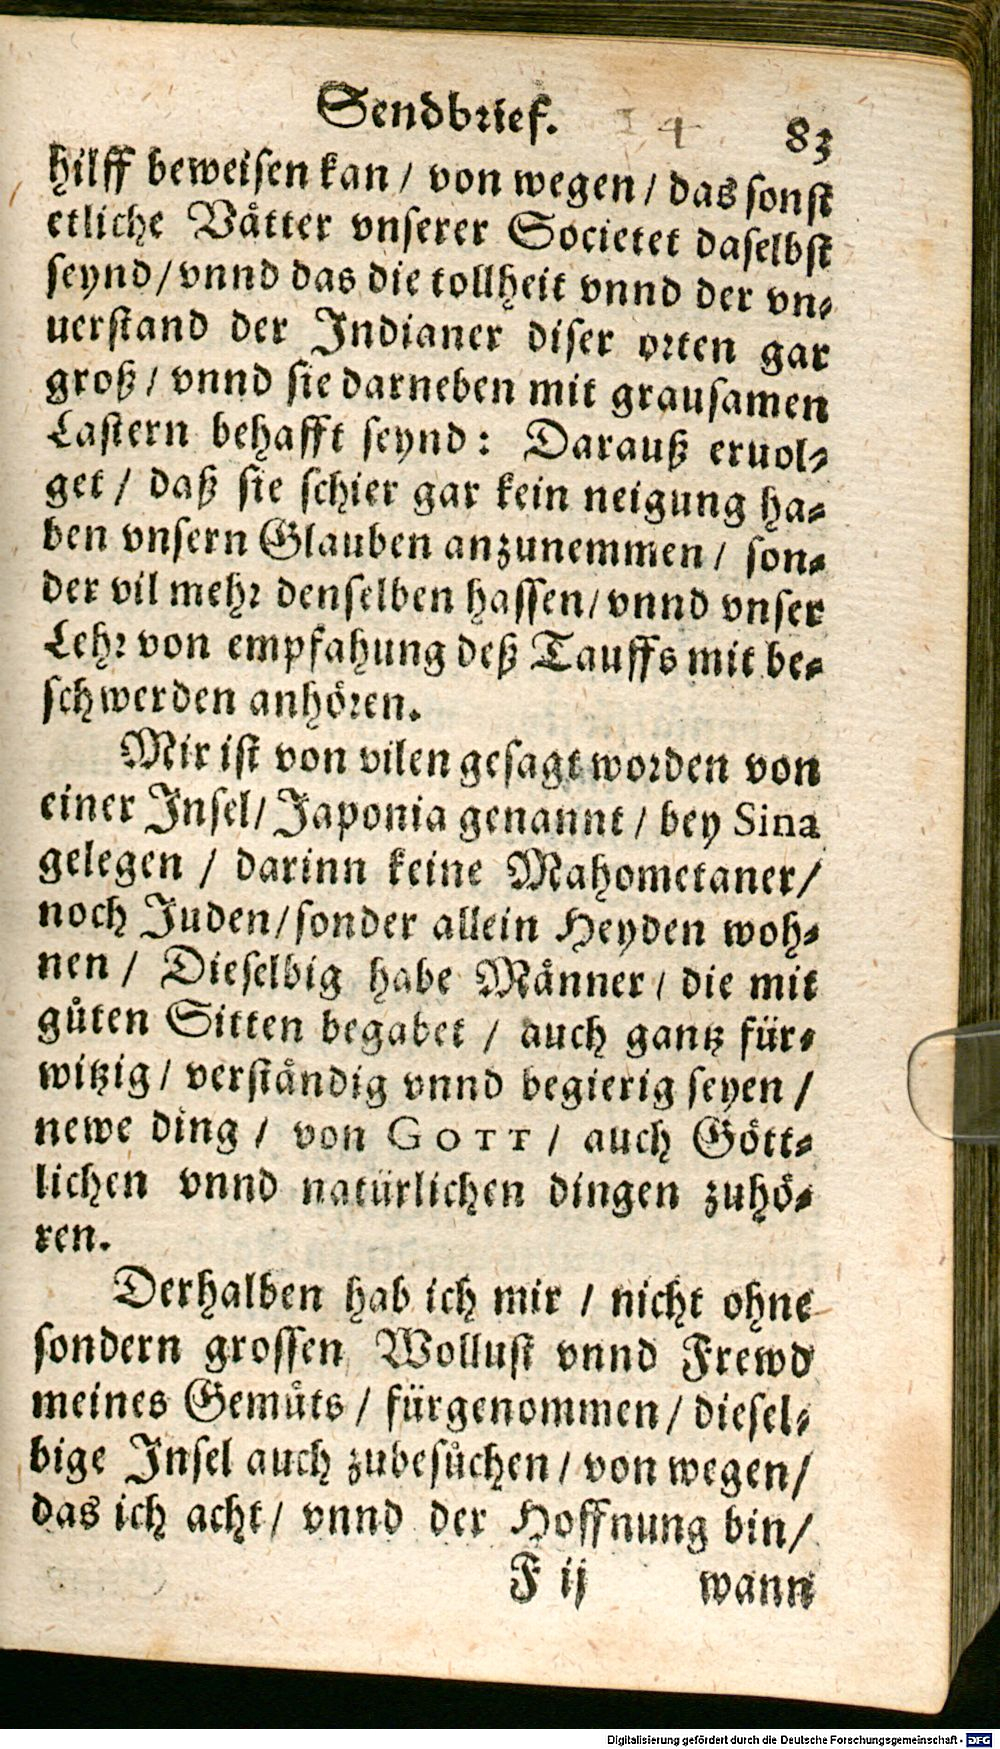 Sendbrief. 14 83
hilff beweisen kan / von wegen / das sonst
etliche Våtter vnserer Societet daselbst
seynd / vnnd das die tollheit vnnd der vn⸗
uerstand der Indianer diser orten gar
groß / vnnd sie darneben mit grausamen
Lastern behafft seynd: Darauß eruol⸗
get / daß sie schier gar kein neigung ha⸗
ben vnsern Glauben anzunemmen / son⸗
der vil mehr denselben hassen / vnnd vnser
Lehr von empfahung deß Tauffs mit be⸗
schwerden anhören.
Mir ist von vilen gesagt worden von
einer Insel / Japonia genannt / bey Sina
gelegen / darinn keine Mahometaner /
noch Juden / sonder allein Heyden woh⸗
nen / Dieselbig habe Månner / die mit
gůten Sitten begabet / auch gantz für⸗
witzig / verståndig vnnd begierig seyen /
newe ding / von GOTT / auch Gött⸗
lichen vnnd natürlichen dingen zuhö⸗
ren.
Derhalben hab ich mir / nicht ohne
sondern grossen Wollust vnnd Frewd
meines Gemůts / fürgenommen / diesel⸗
bige Insel auch zubesůchen / von wegen /
das ich acht / vnnd der Hoffnung bin /
F ij wann
Digitalisierung gefördert durch die Deutsche Forschungsgemeinschaft - DFG